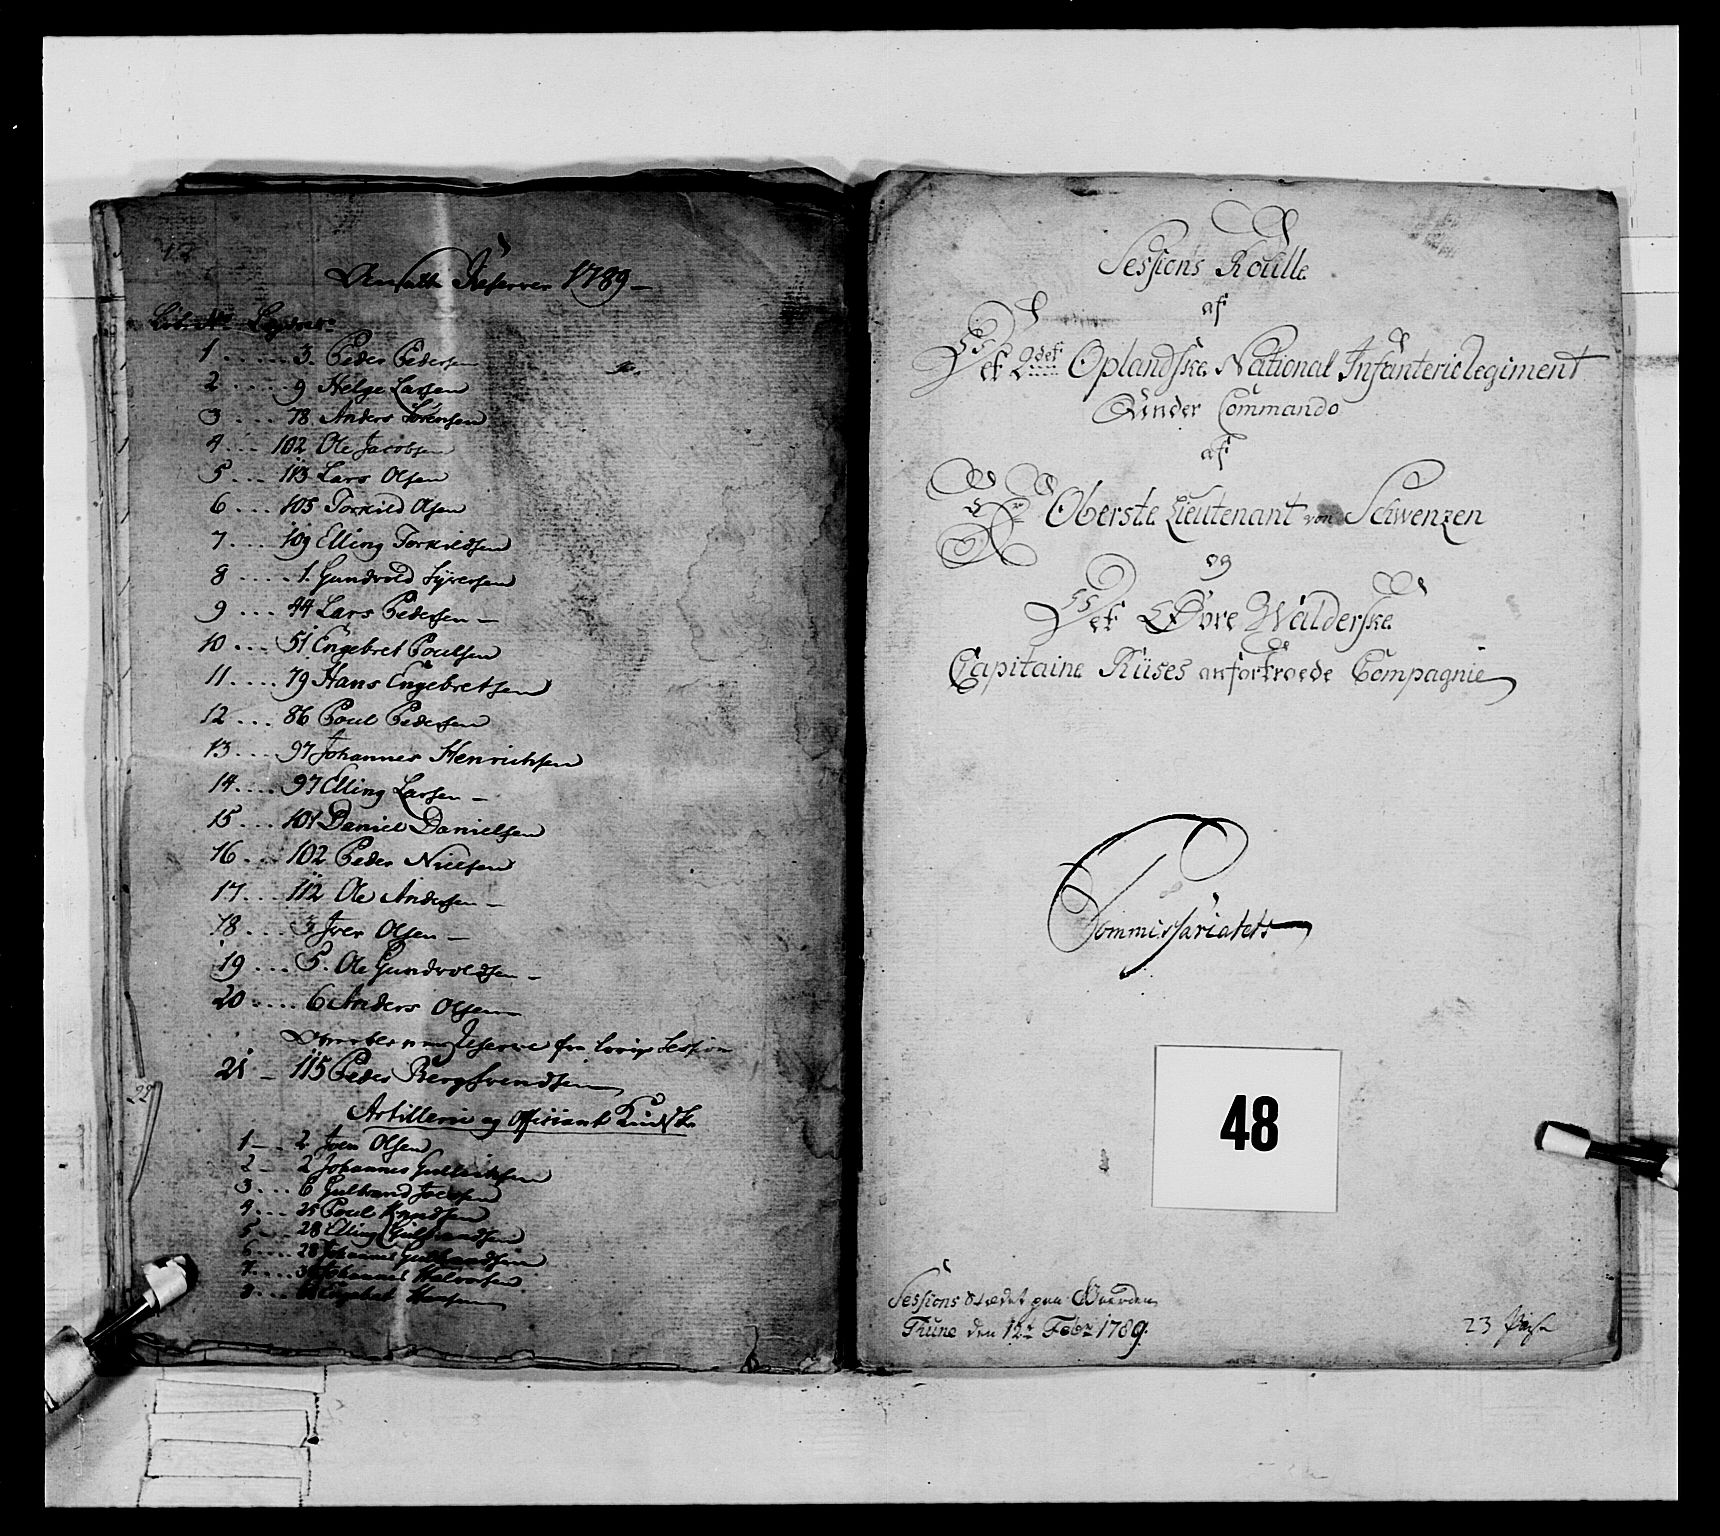 Ansatte Reserver 1789 –
Lib: No Lægds No
1 . . . . . 3. Peder Pedersen
2 . . . . . 9 Helge Larsen
3 . . . . 78 Anders Sørensen
4 . . . 102 Ole Jacobsen
5 . . . 113 Lars Olsen
6 . . . 105 Torkild Olsen
7 . . . . 109 Elling Torkildsen
8 . . . . . 1. Gundvold Syversen
9 . . . . 44 Lars Pedersen –
10 . . . 51 Engebret Poulsen
11 . . . . 79 Hans Engebretsen
12 . . . 86 Poul Pedersen
13 . . . . 97 Johannes Henrichsen
14 . . . . 97 Elling Larsen –
15 . . . 101 Daniel Danielsen
16 . . . 102 Peder Nielsen
17 . . . . 112 Ole Andersen –
18 . . . . 3 Iver Olsen –
19 . . . 5. Ole Gundvoldsen –
20 . . . . . 6 Anders Olsen
Reserve fra Session
21 – 115 Peder Bergsvendsen
Artillerie og Officiant
1 – . . 2 Iver Olsen
2 – . 2 Johannes Gulliksen
3 . . . 6 Gulbrand
4 . . . 25 Poul Knudsen
5 . . . 28 Elling Gulbrandsen
6 . . . . 28 Johannes Gulbrandsen
7 . . . . Johannes Halvorsen
8 . . . Engebret Hansen
22
Sessions Roulle
af
Det 2det Oplandske National Infanterie Regiment
Under Commando
af
Hr Oberste Lieutenant von Schwenzen
og
Det Øvre Walderske
Capitaine Rüses anfortroede Compagnie
Commissariatets
48
Sessions Stædet paa Gaarden
Thune den 12te Febr 1789.
23